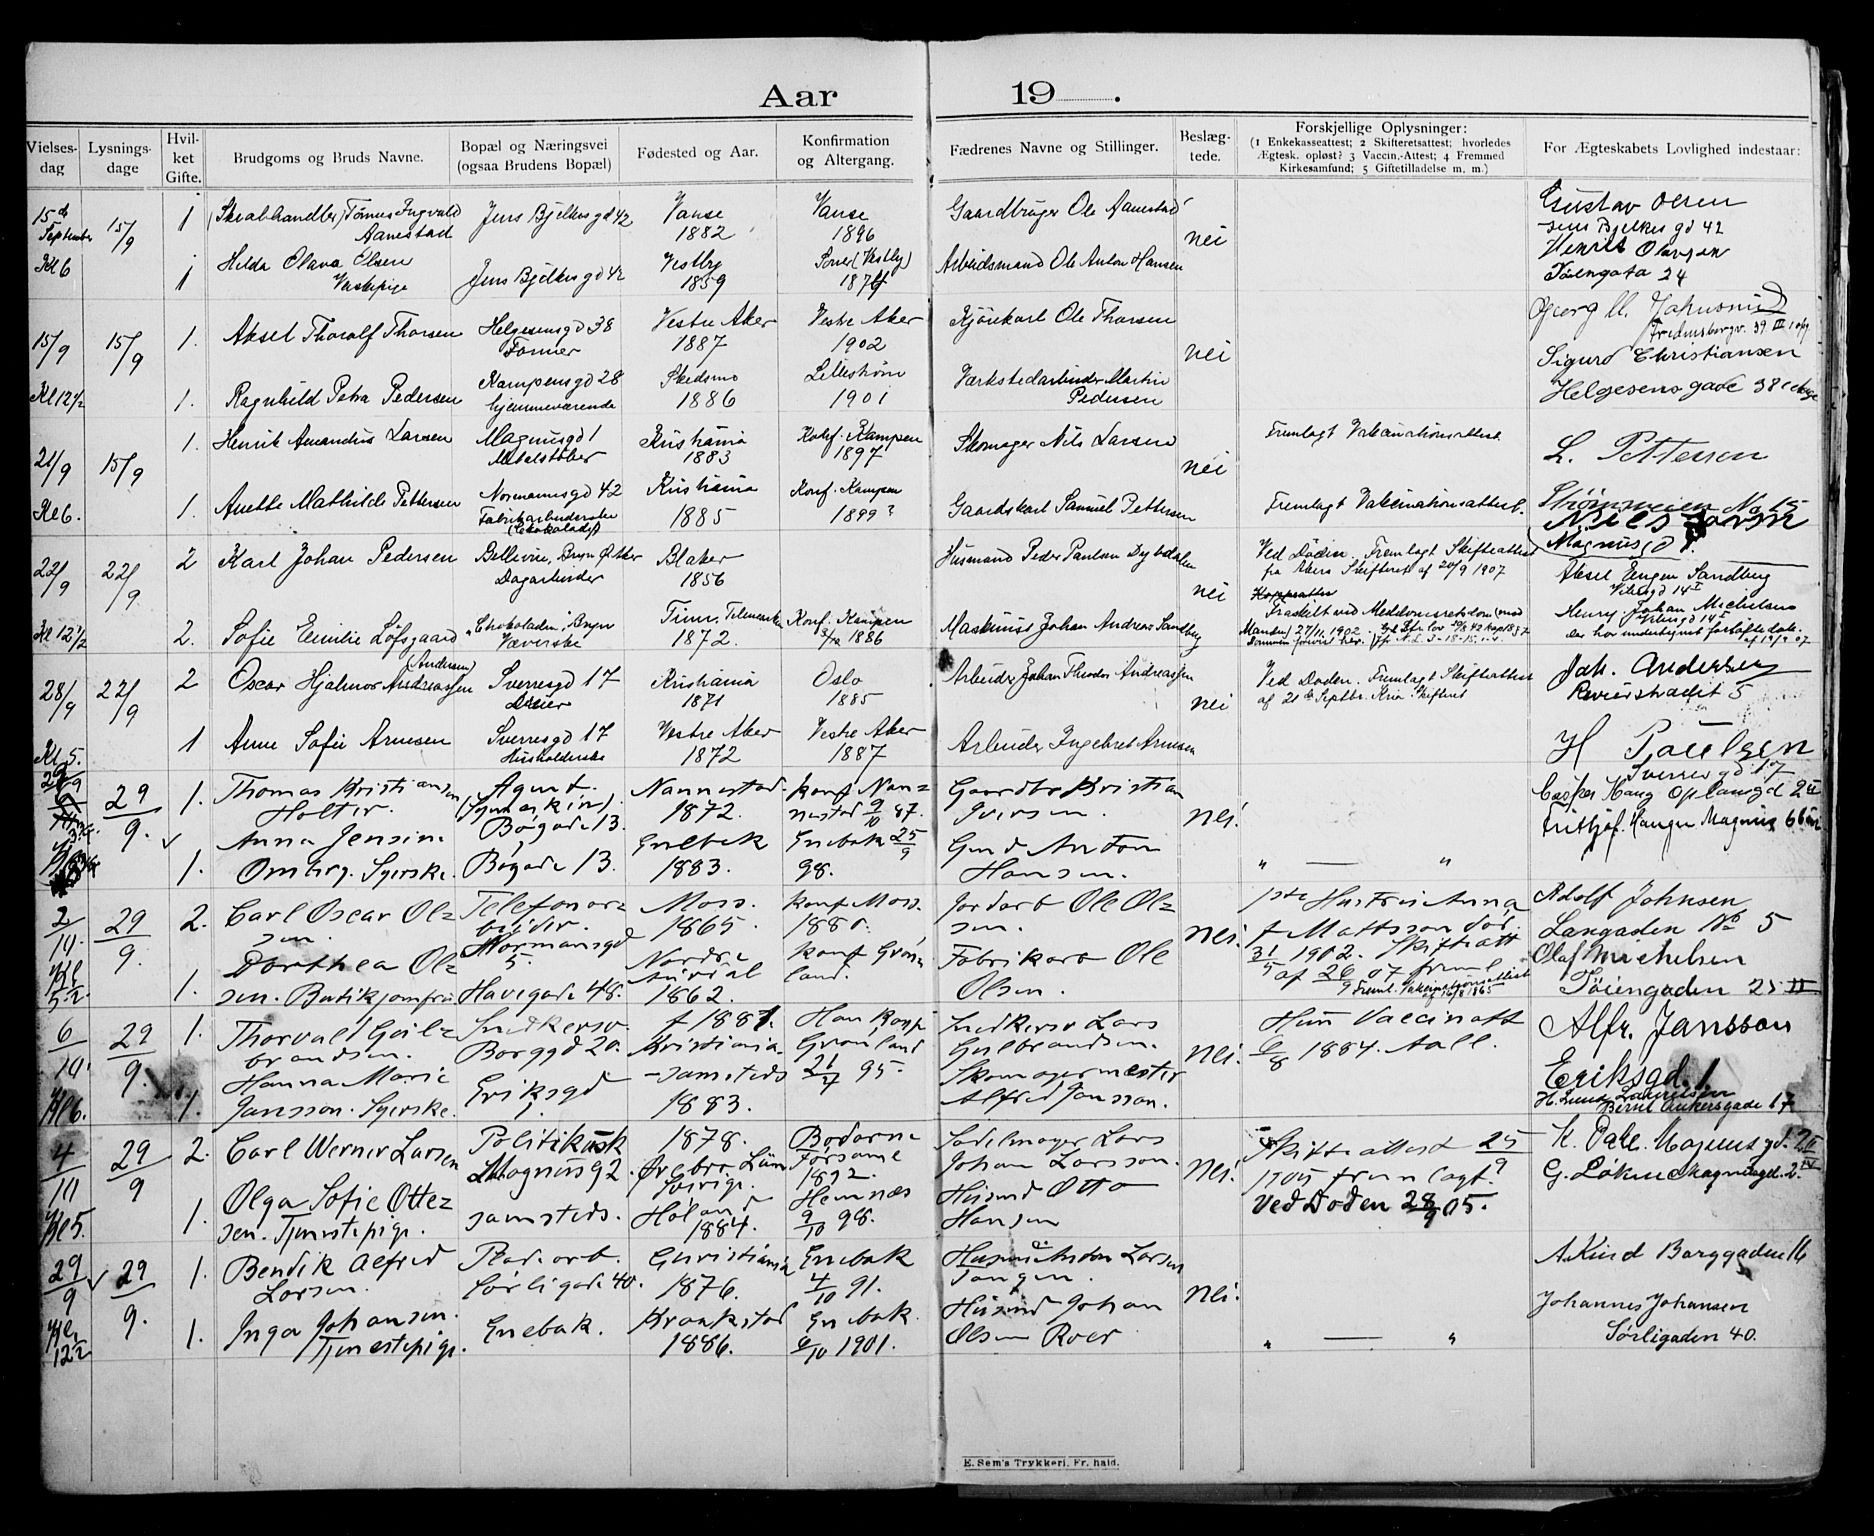 Aar 19 .
Vielses-dag
Lysnings-dage
Hvil-ket Gifte.
Brudgoms og Bruds Navne.
Bopæl og Næringsvei (ogsaa Brudens Bopæl)
Fødested og Aar.
Konfirmation og Altergang.
Fædrenes Navne og Stillinger.
Beslæg-tede.
Forskjellige Oplysninger: (1 Enkekasseattest; 2 Skifteretsattest; hvorledes Ægtesk. opløst? 3 Vaccin.-Attest; 4 Fremmed Kirkesamfund; 5 Giftetilladelse m. m.)
For Ægteskabets Lovlighed indestaar:
15de September 15/9 1 Tømus Ingvald Aanestad Jens Bjelkes gd 42 Vanse 1882 Vanse 1896 Gaardbruger Ole Aanestad nei Gustav Olsen
Jens Bjelkes gd 42
Kl 6 1 Hilda Olava Olsen Jens Bjelkes gd 42 Vestby 1859 (Vestby) Arbeidsmand Ole Anton Hansen
Tøiengata 24
15/9 15/9 1. Aksel Thoralf Thorsen Helgesensgd 38 Vestre Aker 1887 Vestre Aker 1902 Kjørekarl Ole Thorsen nei
Sigurd Christiansen
Kl 12 1/2 1. Ragnhild Petra Pedersen Kampensgd 28 hjemmeværende Skedsmo 1886 Lillestrøm 1901 Værkstedarbeider Martin Pedersen Helgesens gade 38
21/9 15/9 1. Henrik Amandus Larsen Magnusgd 1 Metalstøber Kristiania 1883 Konf. Kampen 1897 Skomager Nils Larsen nei Fremlagt Vakcinationsattest L. Pettersen
Kl 6. 1. Anette Mathilde Pettersen Normannsgd 42 Fabrikarbeiderske Kristiania 1885 Konf. Kampen 1899? Gaardskarl Samuel Pettersen Fremlagt Vakcinationsattest. Strømsveien No 15
Magnusgd 1.
22/9 22/9 2 Karl Johan Pedersen Bellevue, Bryn Ø. Aker Dagarbeider Blaker 1856 Husmand Peder Paulsen Dybdalen nei Ved Døden. Fremlagt Skifteattest fra Akers Skifteret af 20/9 1907 Aksel Eugen Sandberg
Kl 12 1/2 2. Sofie Emilie Løfsgaard Chokoladen, Bryn Væverske Tinn, Telemarken 1872. Konf. Kampen 1886 Maskinist Johan Andreas Sandberg Henry Johan Michelsen
28/9 22/9 2 Oscar Hjalmar Andreassen (Andersen) Sverresgd 17 Kristiania 1871 Oslo 1885 Arbeider Johan Theodor Andreassen nei Ved Døden. Fremlagt Skifteattest Joh. Andersen
Kl 5. 1 Anne Sofie Arnesen Sverresgd 17 Husholderske Vestre Aker 1872 Vestre Aker 1887 Arbeider Ingebret Arnesen H Paulsen
Sverresgd 17
29/9. 1. Thomas Kristiansen Holter Agent (Symaskin) Bøgade 13. Nannestad 1872. konf Nannestad 9/10 87. Gaardbr Kristian Iversen. nei. Casper Haug Oplandgd 2 II
Fritjof Haugen
1. Anna Jensine Omberg. Syerske. Bøgade 13. Enebak 1883. Enebak 25/9 98. Gmd Anton Hansen. " — "
2/10. 29/9. 2. Carl Oscar Olsen. Telefonarbeider. Normansgd 5. Moss. 1865. konf Moss. 1880. Jordarb Ole Olsen. nei. 1ste Hustru Anna f Mattsson død. 31/5 1902. Skifteatt af 26/9 07 freml. Adolf Johnsen
Langaden No 5
Kl 5 1/2. 1. Dorthea Olsen. Butikjomfru Havegade 48. Nordre Aurdal 1862. konf Grønland. Fabrikarb Ole Olsen. Olaf Michelsen
Tøiengaden 25 III
6/10. 29/9. 1. Thorvald Gulbrandsen. Snedkersv Borggd 20. f 1881. Kristiania Han konf Grønland 21/4 95. Snedkersv Lars Gulbrandsen. nei. Hun Vaccinatt 6/8 1884. Aall. Alfr. Jansson
Eriksgd. 1
Kl 6. 1. Hanna Marie Jansson. Syerske. Eriksgd 1. samsteds 1883. Skomagermester Alfred Jansson.
4/10 29/9 2. Carl Werner Larsen Politikusk Magnusg 2. 1878. Ørebro Län Sverige. 1892. Sadelmager Lars Johan Larsson. nei. Skifteattest 25/9 1905 fremlagt. Ved Døden 28/9 05. K. Dale. Magnus gd. 2 II
Kl 5. 1. Olga Sofie Ottesen. Tjenestepige. samsteds. Høland 1884. Hemnæs 9/10 98. Husmd Otto Hansen G. Løken Magnusgd. 2. IV
29/9 29/9. 1. Bendik Alfred Larsen. Sørligade 40. Christiania 1876. Enebak 4/10 91. Husmd Anton Larsen Tangen. nei. A. Kind Borggaden 16
Kl 12 1/2 1. Inga Johansen. Tjenestepige. Enebak. Kraakstad 1886. Enebak. 6/10 1901. Husmd Johan Olsen Roer " — " Johannes Johansen
Sørligaden 40.
E. Sem's Trykkeri. Fr. hald.